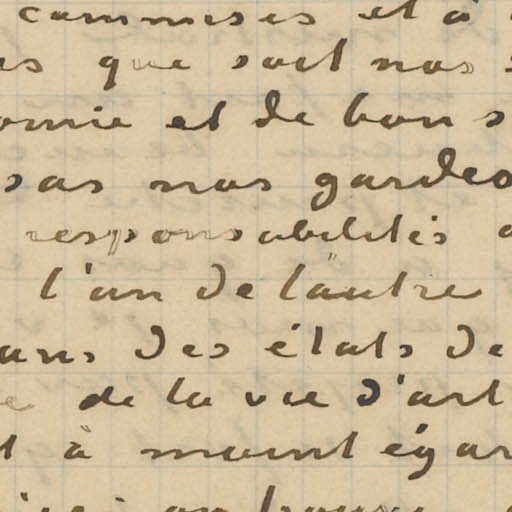 commises et à
es que sont nos
omie et de bon s
sas nos gardes
responsabilités
l'un de l'autre
ans des états de
de la vie d'art
t à maint égar